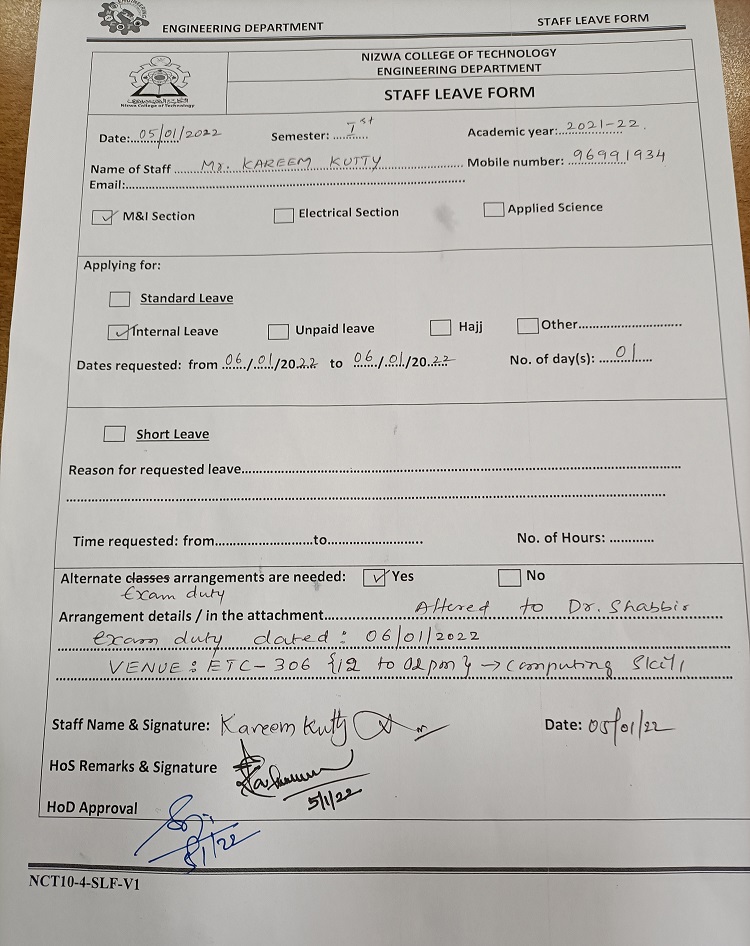 ENGINEERING DEPARTMENT STAFF LEAVE FORM
NIZWA COLLEGE OF TECHNOLOGY
ENGINEERING DEPARTMENT
STAFF LEAVE FORM
Nizwa College of Technology
Date: 05/01/2022 Semester: Ist Academic year: 2021-22.
Name of Staff Mr. KAREEM KUTTY Mobile number: 96991934
Email:
M&I Section Electrical Section Applied Science
Applying for:
Standard Leave
Internal Leave Unpaid leave Hajj Other
Dates requested: from 06/01/2022 to 06/01/2022 No. of day(s): 01
Short Leave
Reason for requested leave
Time requested: from to No. of Hours:
Alternate classes arrangements are needed: Yes No
Exam duty
Arrangement details / in the attachment Altered to Dr. Shabbir
exam duty dated: 06/01/2022
VENUE: ETC-306 {12 to 02pm} → Computing Skill
Staff Name & Signature: Kareem Kutty Date: 05/01/22
HoS Remarks & Signature
5/1/22
HoD Approval
5/1/22
NCT10-4-SLF-V1